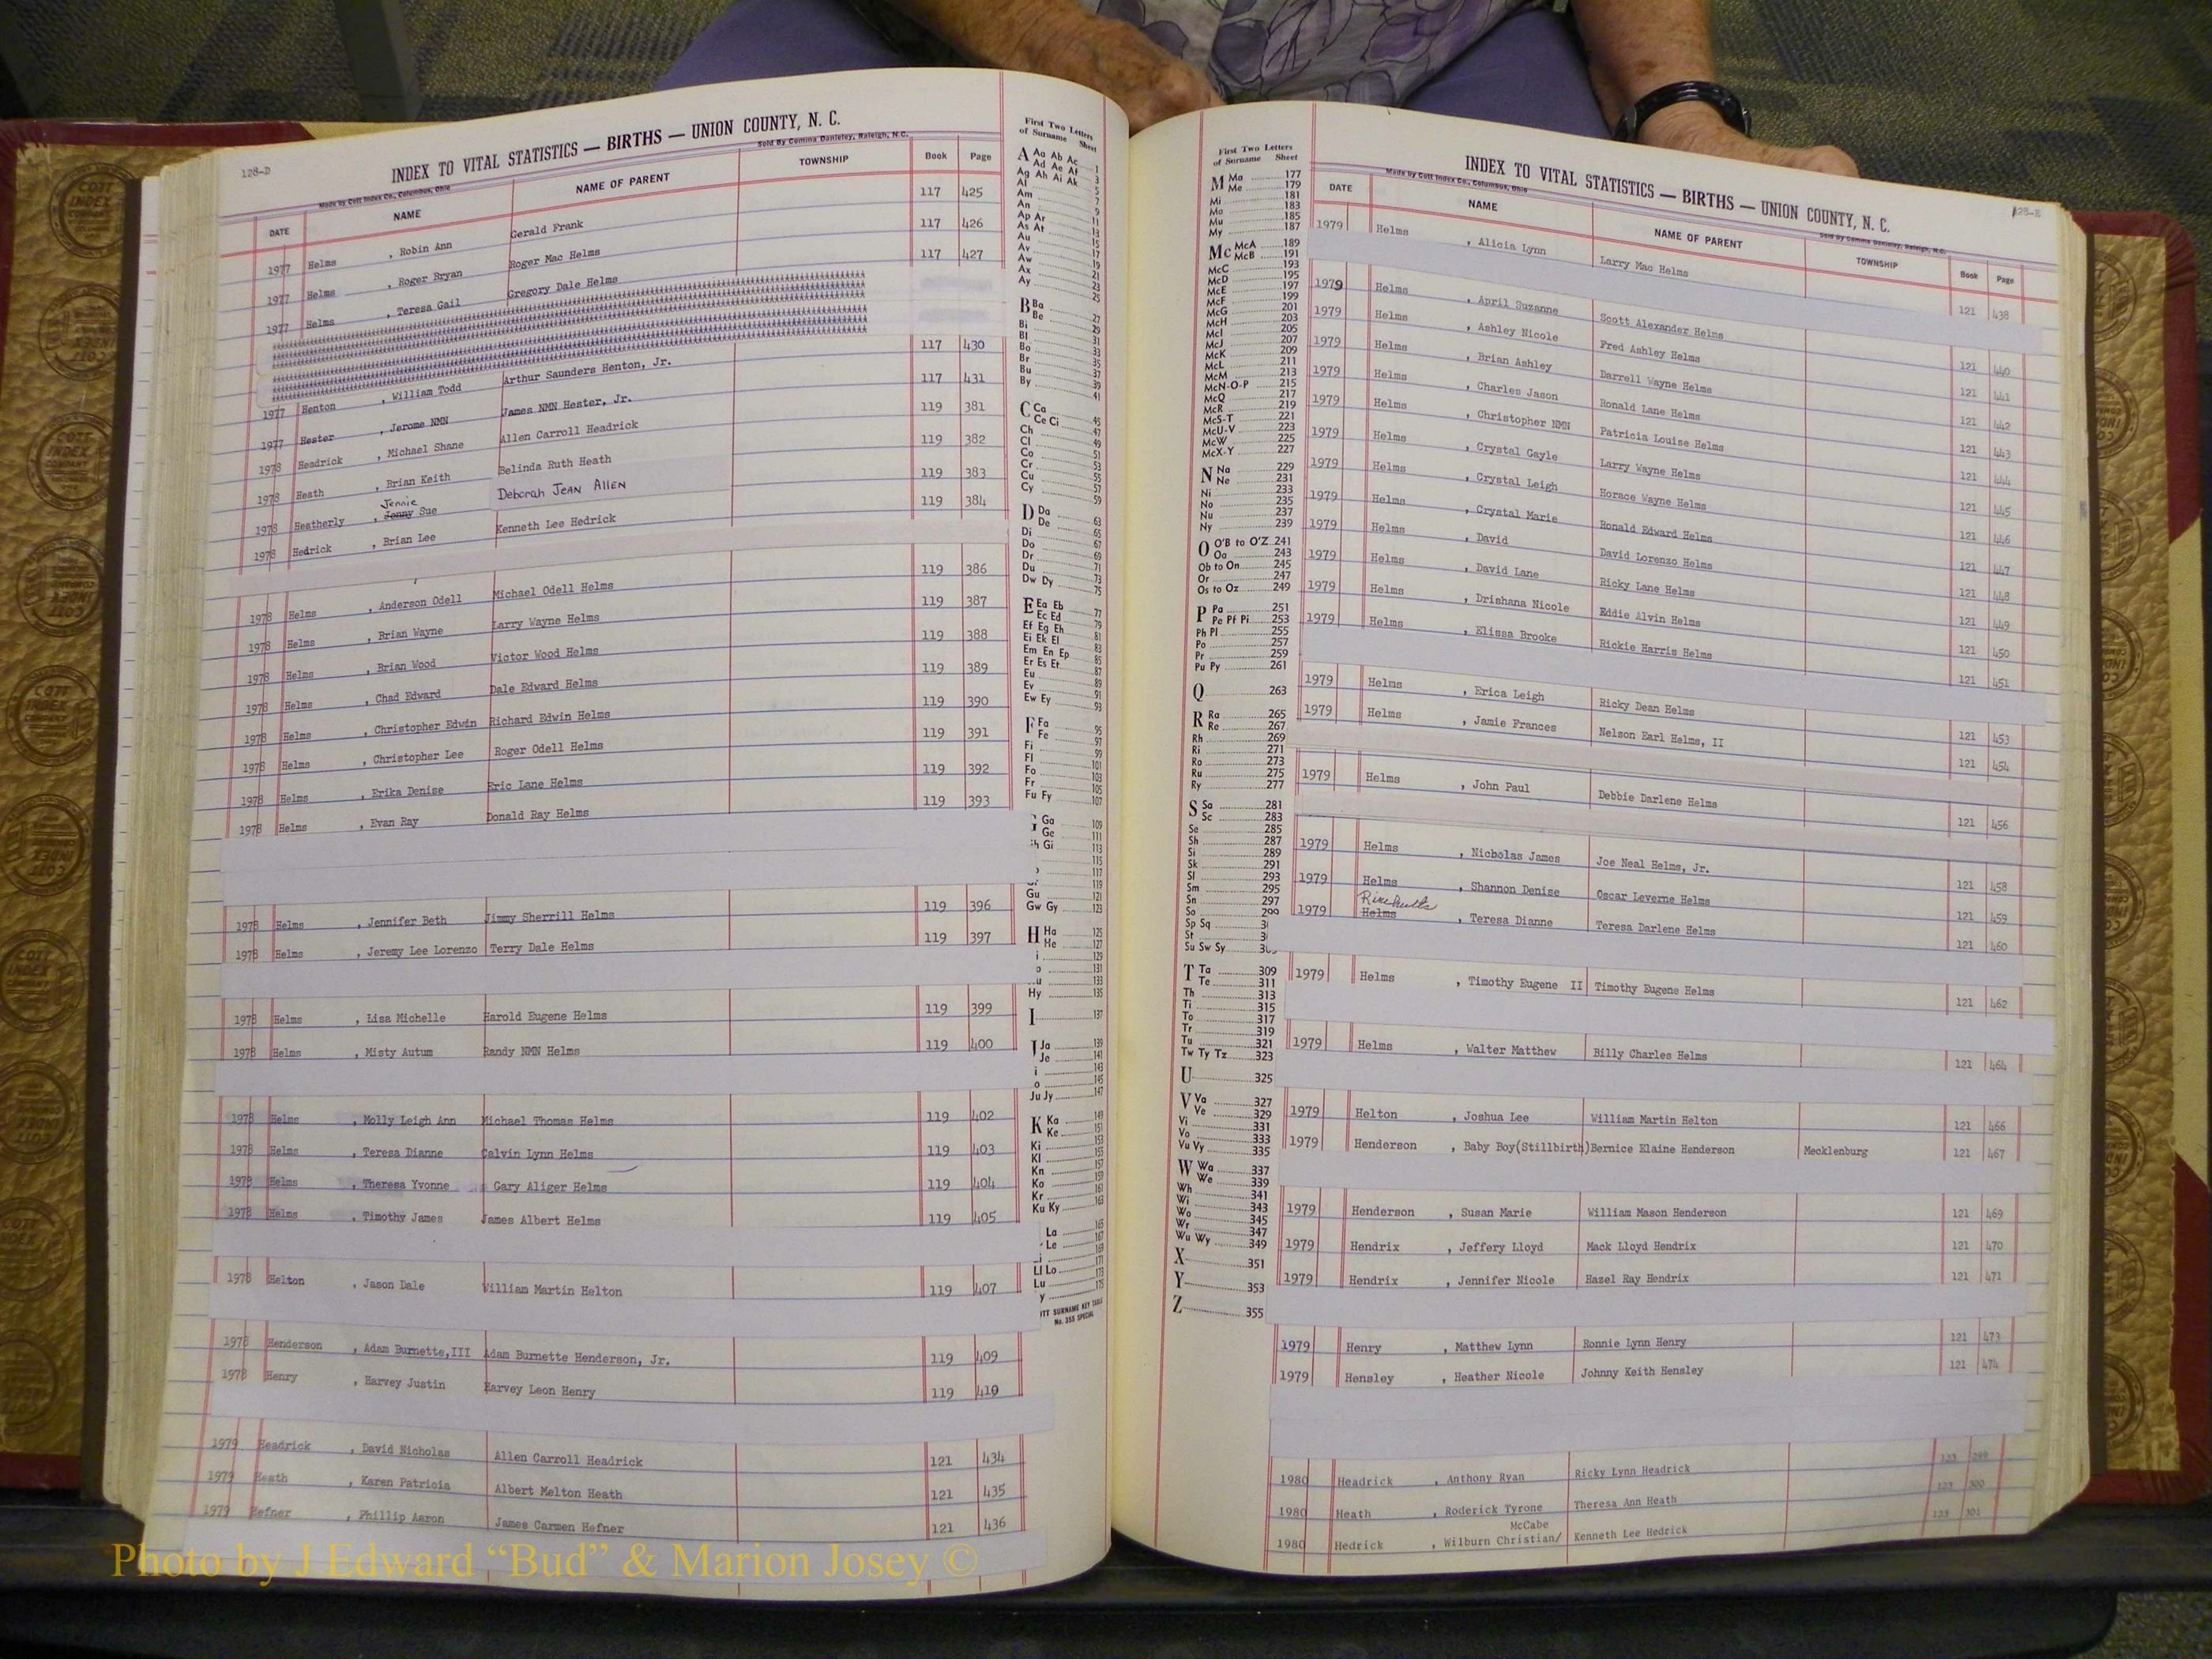 128-D
INDEX TO VITAL STATISTICS — BIRTHS — UNION COUNTY, N. C.
Made by Cott Index Co., Columbus, Ohio Sold By Comma Danieley, Raleigh, N.C.
DATE NAME NAME OF PARENT TOWNSHIP Book Page
1977 Helms , Robin Ann Gerald Frank 117 425
1977 Helms , Roger Bryan Roger Mac Helms 117 426
1977 Helms , Teresa Gail Gregory Dale Helms 117 427
1977 Henton , William Todd Arthur Saunders Henton, Jr. 117 430
1977 Hester , Jerome NMN James NMN Hester, Jr. 117 431
1978 Headrick , Michael Shane Allen Carroll Headrick 119 381
1978 Heath , Brian Keith Belinda Ruth Heath 119 382
Jennie
1978 Heatherly , Jenny Sue Deborah JEAN ALLEN 119 383
1978 Hedrick , Brian Lee Kenneth Lee Hedrick 119 384
1978 Helms , Anderson Odell Michael Odell Helms 119 386
1978 Helms , Brian Wayne Larry Wayne Helms 119 387
1978 Helms , Brian Wood Victor Wood Helms 119 388
1978 Helms , Chad Edward Dale Edward Helms 119 389
1978 Helms , Christopher Edwin Richard Edwin Helms 119 390
1978 Helms , Christopher Lee Roger Odell Helms 119 391
1978 Helms , Erika Denise Eric Lane Helms 119 392
1978 Helms , Evan Ray Donald Ray Helms 119 393
1978 Helms , Jennifer Beth Jimmy Sherrill Helms 119 396
1978 Helms , Jeremy Lee Lorenzo Terry Dale Helms 119 397
1978 Helms , Lisa Michelle Harold Eugene Helms 119 399
1978 Helms , Misty Autum Randy NMN Helms 119 400
1978 Helms , Molly Leigh Ann Michael Thomas Helms 119 402
1978 Helms , Teresa Dianne Calvin Lynn Helms 119 403
1978 Helms , Theresa Yvonne Gary Aliger Helms 119 404
1978 Helms , Timothy James James Albert Helms 119 405
1978 Helton , Jason Dale William Martin Helton 119 407
1978 Henderson , Adam Burnette,III Adam Burnette Henderson, Jr. 119 409
1978 Henry , Harvey Justin Harvey Leon Henry 119 410
1979 Headrick , David Nicholas Allen Carroll Headrick 121 434
1979 Heath , Karen Patricia Albert Melton Heath 121 435
1979 Hefner , Phillip Aaron James Carmen Hefner 121 436
First Two Letters
of Surname Sheet
A Aa Ab Ac 1
Ad Ae Af 3
Ag Ah Ai Ak 5
Al 7
Am 9
An 11
Ap Ar 13
As At 15
Au 17
Av 19
Aw 21
Ax 23
Ay 25
B Ba 27
Be 29
Bi 31
Bl 33
Bo 35
Br 37
Bu 39
By 41
C Ca 45
Ce Ci 47
Ch 49
Cl 51
Co 53
Cr 55
Cu 57
Cy 59
D Da 63
De 65
Di 67
Do 69
Dr 71
Du 73
Dw Dy 75
E Ea Eb 77
Ec Ed 79
Ef Eg Eh 81
Ei Ek El 83
Em En Ep 85
Er Es Et 87
Eu 89
Ev 91
Ew Ey 93
F Fa 95
Fe 97
Fi 99
Fl 101
Fo 103
Fr 105
Fu Fy 107
Ga 109
Ge 111
Gi 113
115
117
119
Gu 121
Gw Gy 123
H Ha 125
He 127
129
131
133
Hy 135
I 137
J Ja 139
Je 141
143
145
Ju Jy 147
K Ka 149
Ke 151
Ki 153
Kl 155
Kn 157
Ko 159
Kr 161
Ku Ky 163
La 165
Le 167
169
Ll Lo 171
Lu 173
y 175
SURNAME KEY TABLE
No. 355 SPECIAL
First Two Letters
of Surname Sheet
M Ma 177
Me 179
Mi 181
Mo 183
Mu 185
My 187
Mc McA 189
McB 191
McC 193
McD 195
McE 197
McF 199
McG 201
McH 203
McI 205
McJ 207
McK 209
McL 211
McM 213
McN-O-P 215
McQ 217
McR 219
McS-T 221
McU-V 223
McW 225
McX-Y 227
N Na 229
Ne 231
Ni 233
No 235
Nu 237
Ny 239
O O'B to O'Z 241
Oa 243
Ob to On 245
Or 247
Os to Oz 249
P Pa 251
Pe Pf Pi 253
Ph Pl 255
Po 257
Pr 259
Pu Py 261
Q 263
R Ra 265
Re 267
Rh 269
Ri 271
Ro 273
Ru 275
Ry 277
S Sa 281
Sc 283
Se 285
Sh 287
Si 289
Sk 291
Sl 293
Sm 295
Sn 297
So 299
Sp Sq
St
Su Sw Sy
T Ta 309
Te 311
Th 313
Ti 315
To 317
Tr 319
Tu 321
Tw Ty Tz 323
U 325
V Va 327
Ve 329
Vi 331
Vo 333
Vu Vy 335
W Wa 337
We 339
Wh 341
Wi 343
Wo 345
Wr 347
Wu Wy 349
X 351
Y 353
Z 355
128-E
INDEX TO VITAL STATISTICS — BIRTHS — UNION COUNTY, N. C.
Made by Cott Index Co., Columbus, Ohio Sold By Comma Danieley, Raleigh, N.C.
DATE NAME NAME OF PARENT TOWNSHIP Book Page
1979 Helms , Alicia Lynn Larry Mac Helms 121 438
1979 Helms , April Suzanne Scott Alexander Helms 121 440
1979 Helms , Ashley Nicole Fred Ashley Helms 121 441
1979 Helms , Brian Ashley Darrell Wayne Helms 121 442
1979 Helms , Charles Jason Ronald Lane Helms 121 443
1979 Helms , Christopher NMN Patricia Louise Helms 121 444
1979 Helms , Crystal Gayle Larry Wayne Helms 121 445
1979 Helms , Crystal Leigh Horace Wayne Helms 121 446
1979 Helms , Crystal Marie Ronald Edward Helms 121 447
1979 Helms , David David Lorenzo Helms 121 448
1979 Helms , David Lane Ricky Lane Helms 121 449
1979 Helms , Drishana Nicole Eddie Alvin Helms 121 450
1979 Helms , Elissa Brooke Rickie Harris Helms 121 451
1979 Helms , Erica Leigh Ricky Dean Helms 121 453
1979 Helms , Jamie Frances Nelson Earl Helms, II 121 454
1979 Helms , John Paul Debbie Darlene Helms 121 456
1979 Helms , Nicholas James Joe Neal Helms, Jr. 121 458
1979 Helms , Shannon Denise Oscar Leverne Helms 121 459
1979 Helms , Teresa Dianne Teresa Darlene Helms 121 460
1979 Helms , Timothy Eugene II Timothy Eugene Helms 121 462
1979 Helms , Walter Matthew Billy Charles Helms 121 464
1979 Helton , Joshua Lee William Martin Helton 121 466
1979 Henderson , Baby Boy(Stillbirth) Bernice Elaine Henderson Mecklenburg 121 467
1979 Henderson , Susan Marie William Mason Henderson 121 469
1979 Hendrix , Jeffery Lloyd Mack Lloyd Hendrix 121 470
1979 Hendrix , Jennifer Nicole Hazel Ray Hendrix 121 471
1979 Henry , Matthew Lynn Ronnie Lynn Henry 121 473
1979 Hensley , Heather Nicole Johnny Keith Hensley 121 474
1980 Headrick , Anthony Ryan Ricky Lynn Headrick 123 299
1980 Heath , Roderick Tyrone Theresa Ann Heath 123 300
McCabe
1980 Hedrick , Wilburn Christian/ Kenneth Lee Hedrick 123 301
Photo by J Edward “Bud” & Marion Josey ©